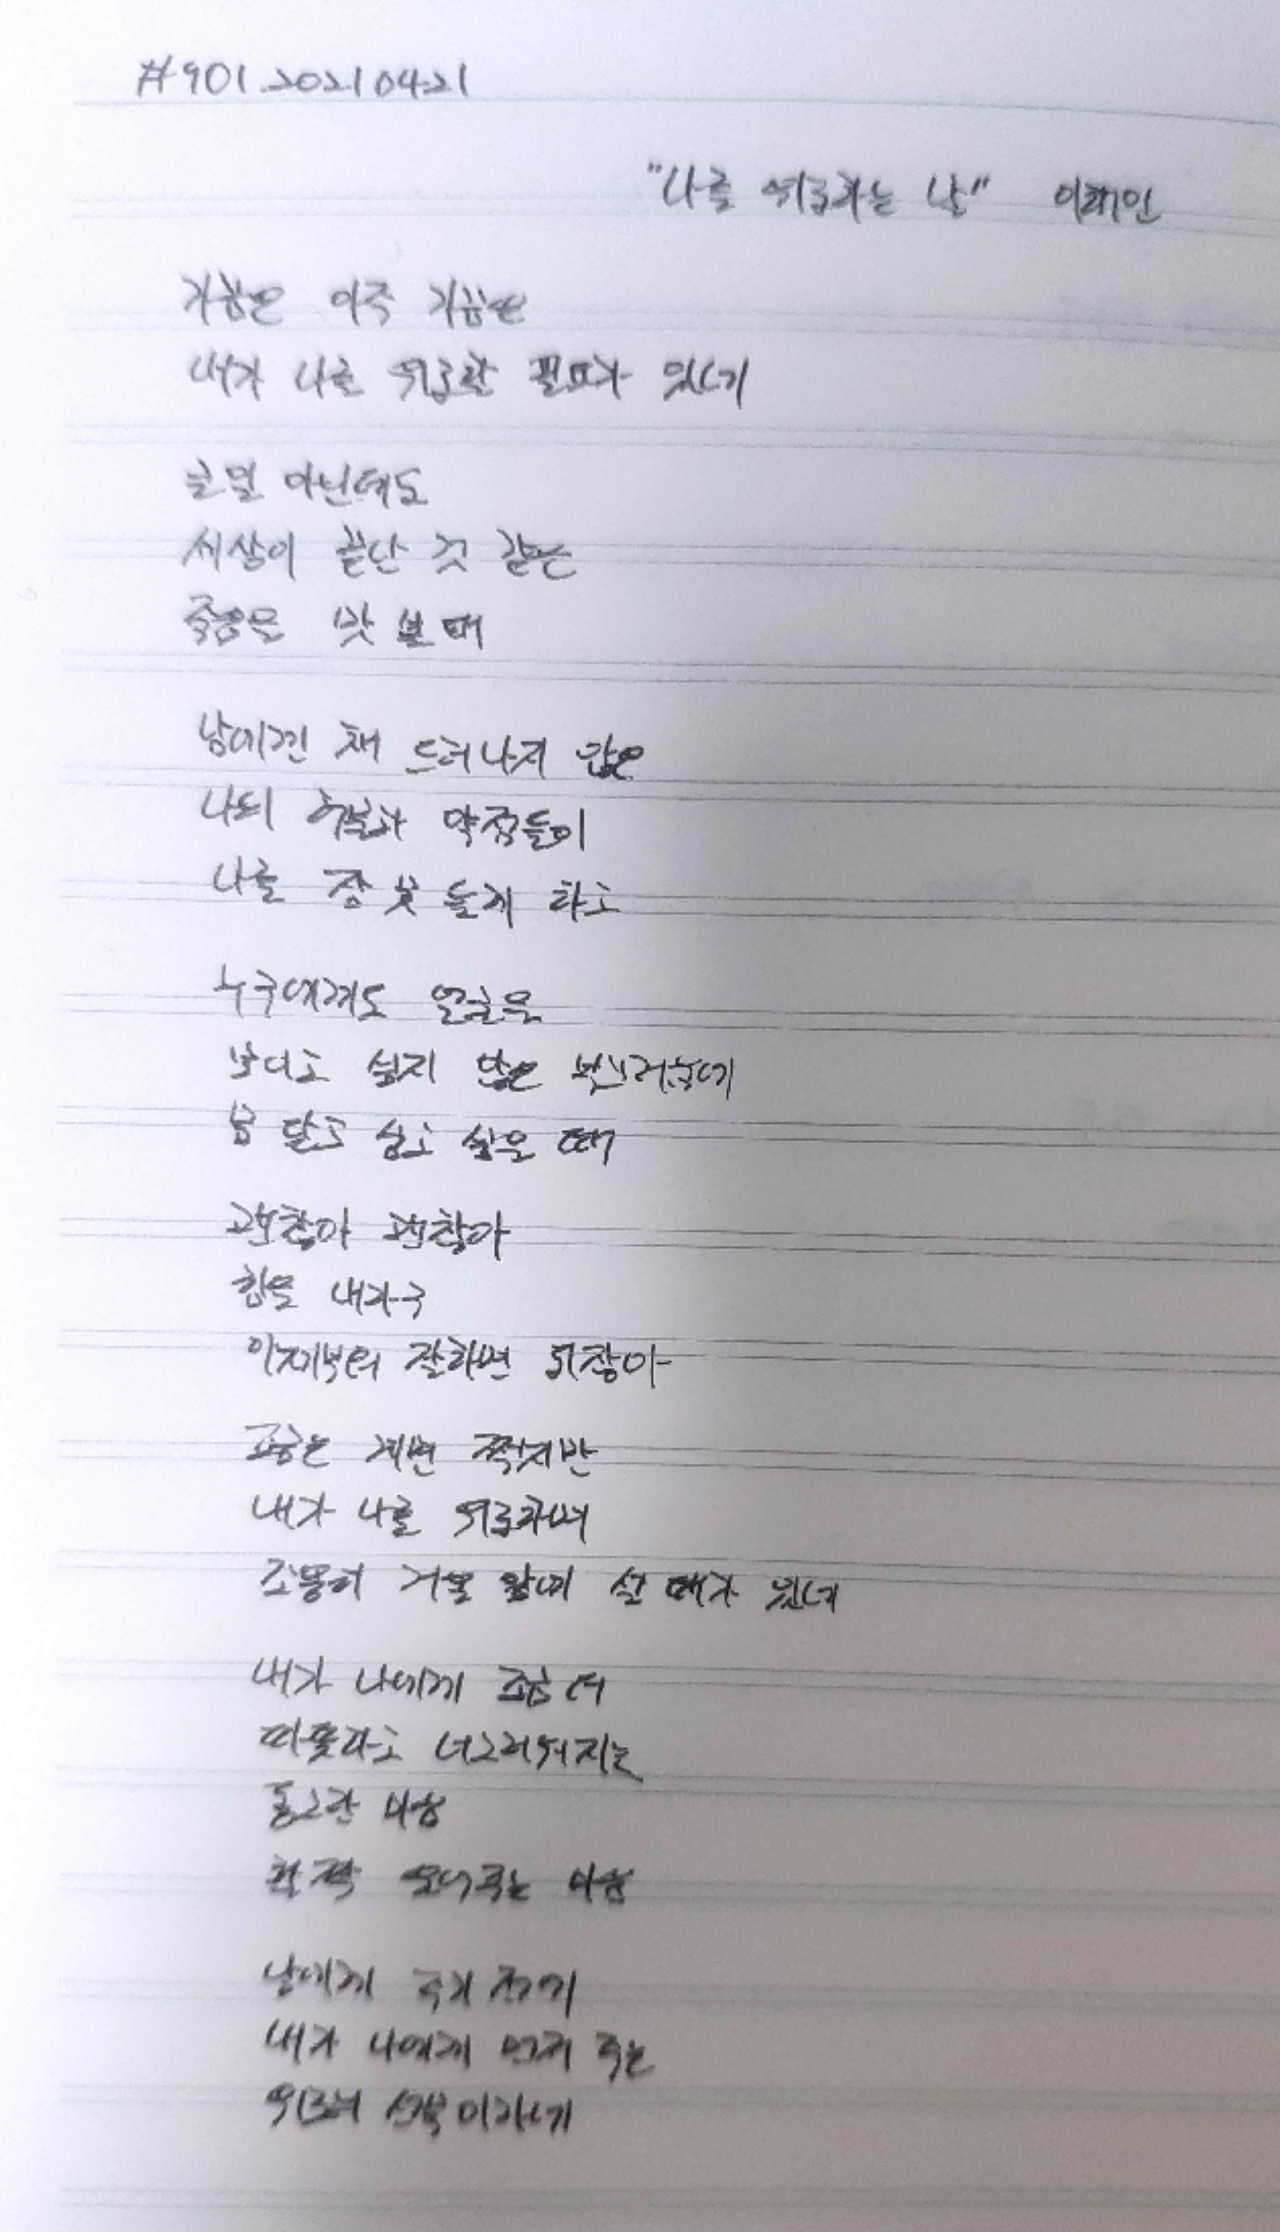 #901.20210421
"나를 위로하는 날" 이해인
가끔은 아주 가끔은
내가 나를 위로할 필요가 있네
큰일 아닌데도
세상이 끝난 것 같은
죽음을 맛 볼 때
남에겐 채 드러나지 않은
나의 허물과 약점들이
나를 잠 못 들게 하고
누구에게도 얼굴을
보이고 싶지 않은 부끄러움에
문 닫고 싶고 싶은 때
괜찮아 괜찮아
힘을 내라구
이제부터 잘하면 되잖아
조금은 계면 쩍지만
내가 나를 위로하며
조용히 거울 앞에 설 때가 있네
내가 나에게 조금 더
따뜻하고 너그러워지는
동그란 마음
활짝 웃어주는 마음
남에게 주기 전에
내가 나에게 먼저 주는
위로의 선물이라네